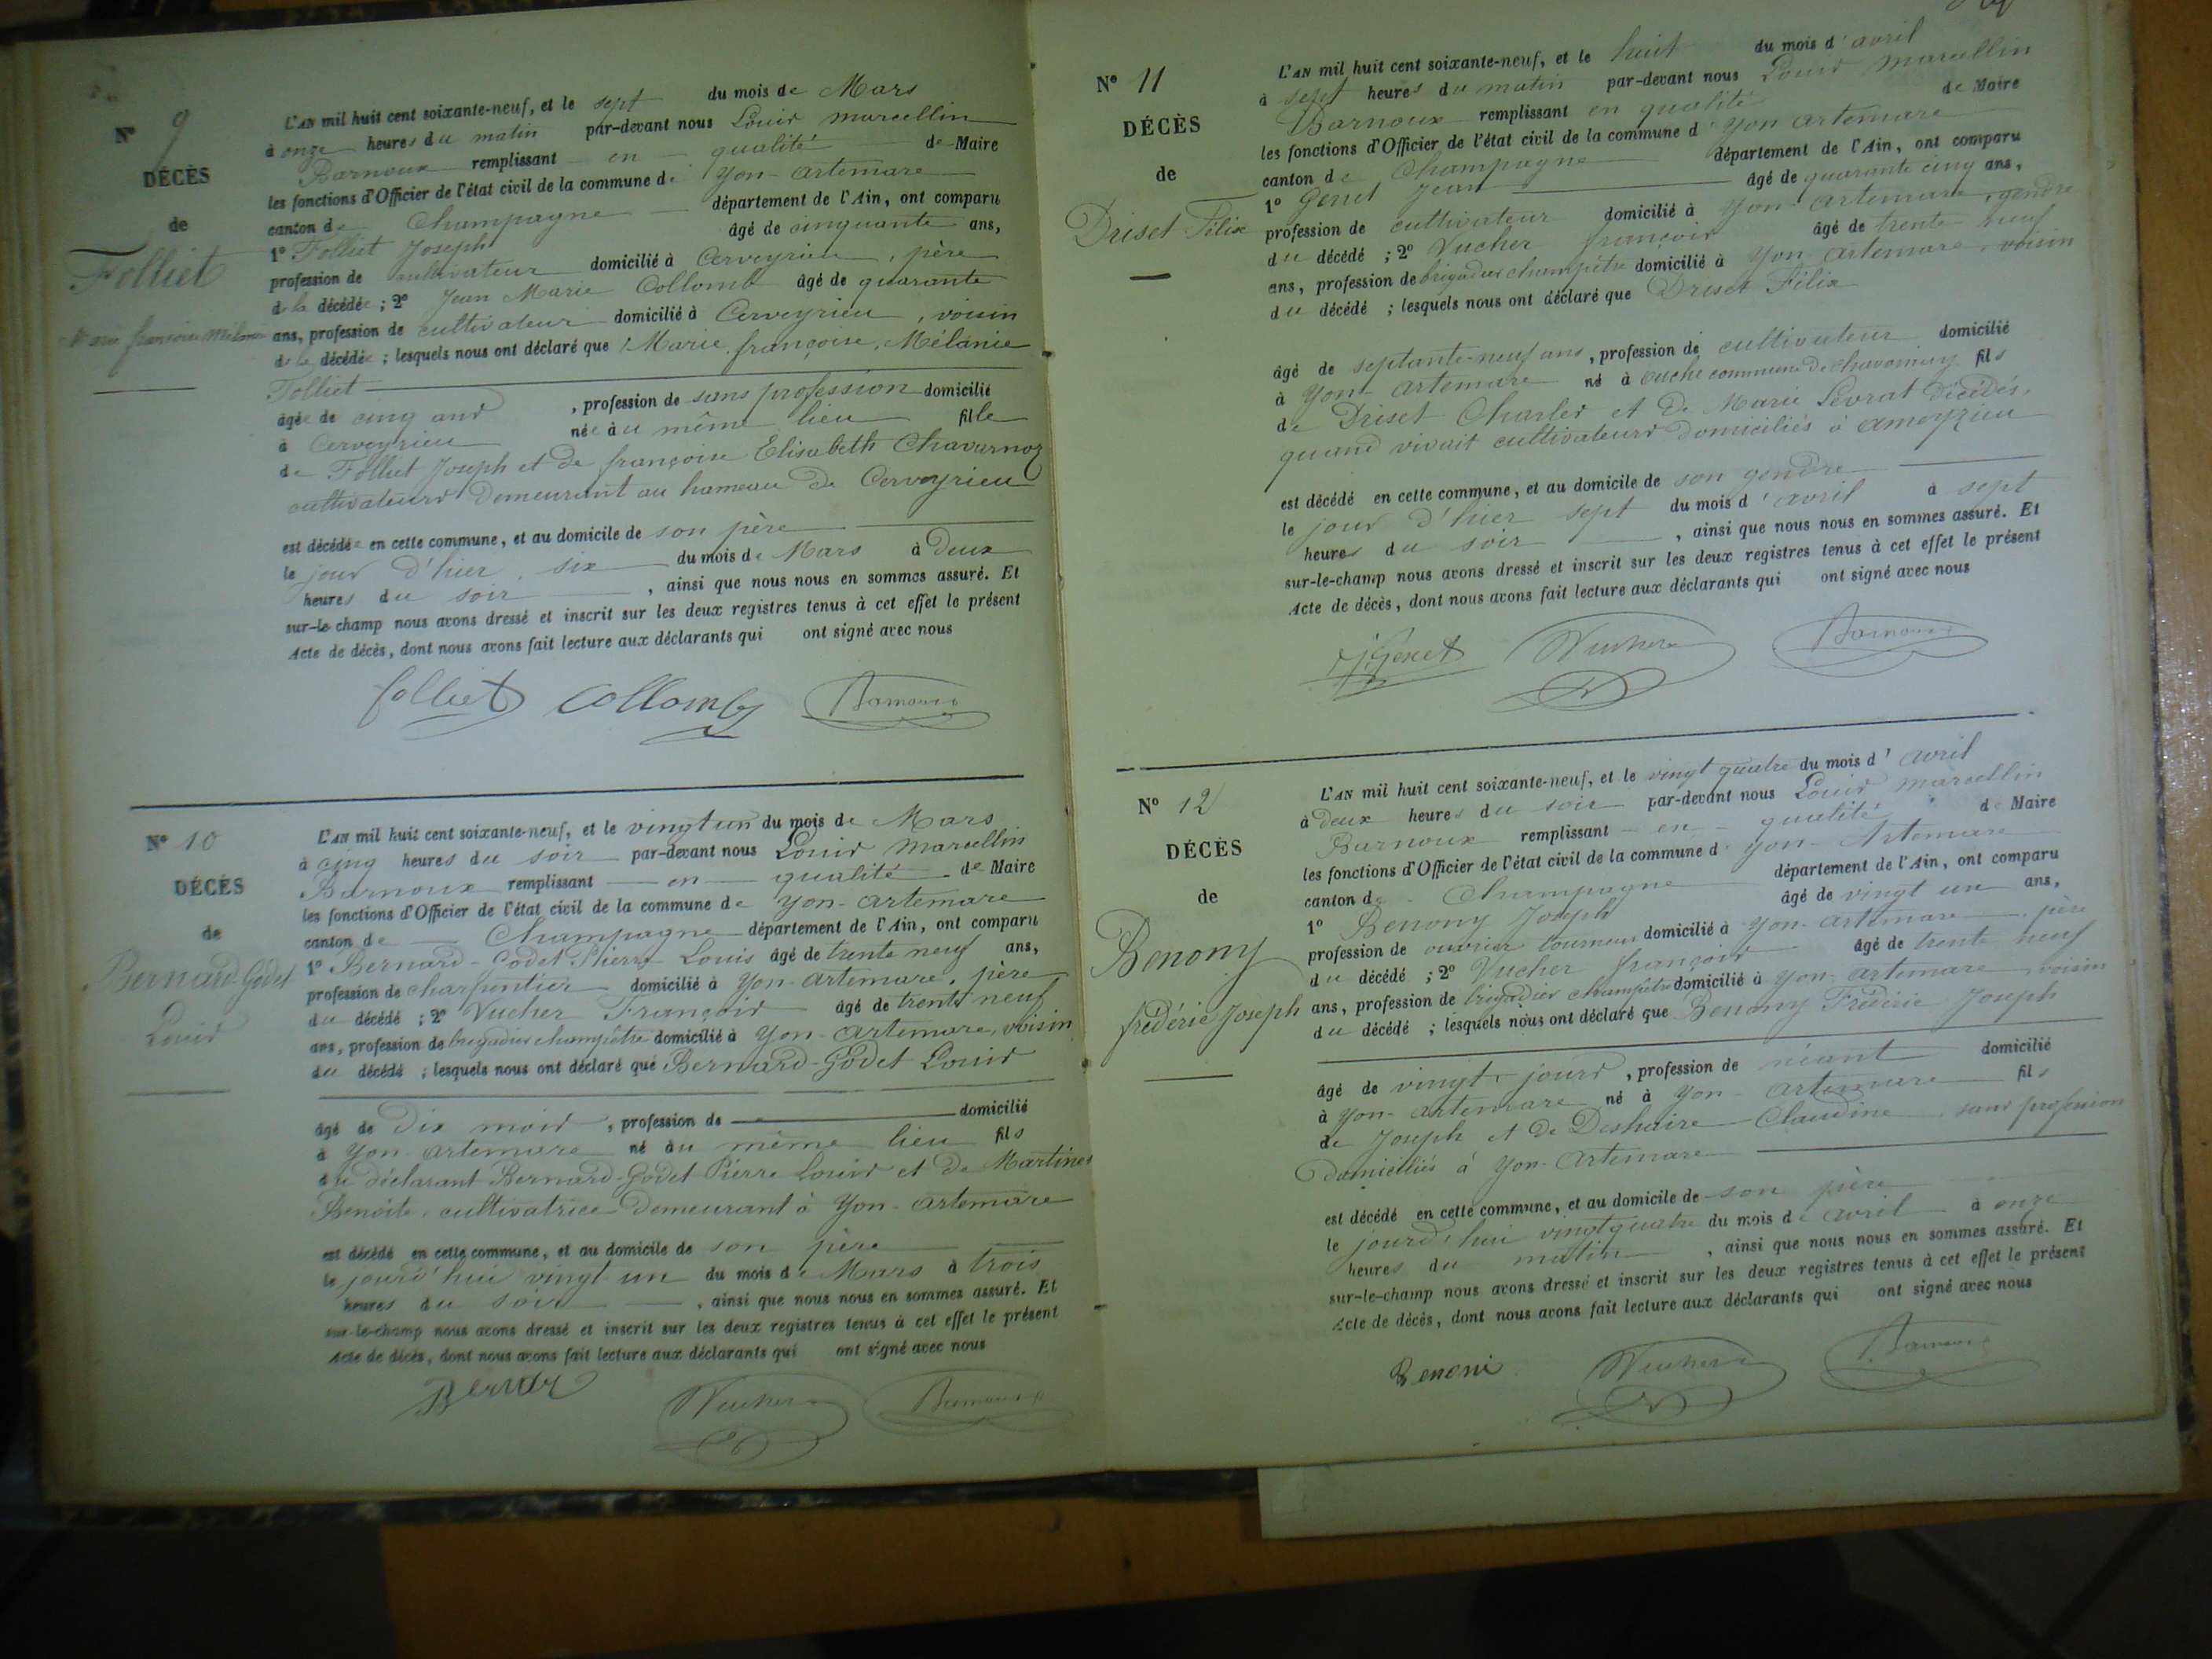 N° 9
DÉCÈS
de
Folliet
Marie françoise Mélanie
L'AN mil huit cent soixante-neuf, et le sept du mois de Mars
à onze heures du matin par-devant nous Louis marcellin
Barnoux remplissant en qualité de Maire
les fonctions d'Officier de l'état civil de la commune de Yon-artemare
canton de Champagne département de l'Ain, ont comparu
1° Folliet Joseph âgé de cinquante ans,
profession de cultivateur domicilié à Cerveyrieu, père
de la décédée ; 2° Jean Marie Collomb âgé de quarante
ans, profession de cultivateur domicilié à Cerveyrieu, voisin
de la décédée ; lesquels nous ont déclaré que Marie, françoise, Mélanie
Folliet
âgée de cinq ans, profession de sans profession domicilié
à Cerveyrieu née au même lieu fille
de Folliet Joseph et de françoise Elisabeth Chavarnoz
cultivateurs demeurant au hameau de Cerveyrieu
est décédée en cette commune, et au domicile de son père
le jour d'hier, six du mois de Mars à deux
heures du soir, ainsi que nous nous en sommes assuré. Et
sur-le-champ nous avons dressé et inscrit sur les deux registres tenus à cet effet le présent
Acte de décès, dont nous avons fait lecture aux déclarants qui ont signé avec nous
folliet Collomb Barnoux
N° 10
DÉCÈS
de
Bernard-Godet
Louis
L'AN mil huit cent soixante-neuf, et le vingt un du mois de Mars
à cinq heures du soir par-devant nous Louis marcellin
Barnoux remplissant en qualité de Maire
les fonctions d'Officier de l'état civil de la commune de Yon-artemare
canton de Champagne département de l'Ain, ont comparu
1° Bernard-Godet Pierre Louis âgé de trente neuf ans,
profession de charpentier domicilié à Yon-artemare, père
du décédé ; 2° Vucher François âgé de trente neuf
ans, profession de brigadier champêtre domicilié à Yon-artemare, voisin
du décédé ; lesquels nous ont déclaré que Bernard-Godet Louis
âgé de dix mois, profession de domicilié
à Yon-artemare né au même lieu fils
du déclarant Bernard-Godet Pierre Louis et de Martinet
Benoîte, cultivatrice demeurant à Yon-artemare
est décédé en cette commune, et au domicile de son père
le jourd'hui vingt-un du mois de Mars à trois
heures du soir, ainsi que nous nous en sommes assuré. Et
sur-le-champ nous avons dressé et inscrit sur les deux registres tenus à cet effet le présent
Acte de décès, dont nous avons fait lecture aux déclarants qui ont signé avec nous
Bernar Vucher Barnoux
N° 11
DÉCÈS
de
Driset Félix
L'AN mil huit cent soixante-neuf, et le huit du mois d'avril
à sept heures du matin par-devant nous Louis marcellin
Barnoux remplissant en qualité de Maire
les fonctions d'Officier de l'état civil de la commune d'Yon artemare
canton de Champagne département de l'Ain, ont comparu
1° Genet Jean âgé de quarante cinq ans,
profession de cultivateur domicilié à Yon-artemare, gendre
du décédé ; 2° Vucher françois âgé de trente neuf
ans, profession de brigadier champêtre domicilié à Yon artemare, voisin
du décédé ; lesquels nous ont déclaré que Driset Félix
âgé de septante-neuf ans, profession de cultivateur domicilié
à Yon artemare né à commune de chavornay fils
de Driset Charles et de Marie Levrat décédés,
quand vivait cultivateurs domiciliés à ameyzieu
est décédé en cette commune, et au domicile de son gendre
le jour d'hier sept du mois d'avril à sept
heures du soir, ainsi que nous nous en sommes assuré. Et
sur-le-champ nous avons dressé et inscrit sur les deux registres tenus à cet effet le présent
Acte de décès, dont nous avons fait lecture aux déclarants qui ont signé avec nous
J. Genet Vucher Barnoux
N° 12
DÉCÈS
de
Benony
frédéric Joseph
L'AN mil huit cent soixante-neuf, et le vingt quatre du mois d'avril
à deux heures du soir par-devant nous Louis marcellin
Barnoux remplissant en qualité de Maire
les fonctions d'Officier de l'état civil de la commune d'Yon-Artemare
canton de Champagne département de l'Ain, ont comparu
1° Benony Joseph âgé de vingt un ans,
profession de ouvrier tourneur domicilié à Yon-artemare, père
du décédé ; 2° Vucher françois âgé de trente neuf
ans, profession de brigadier champêtre domicilié à Yon-artemare, voisin
du décédé ; lesquels nous ont déclaré que Benony Frédéric Joseph
âgé de vingt jours, profession de néant domicilié
à Yon-artemare né à Yon-artemare fils
de Joseph et de Deshaire Claudine, sans profession
Domiciliés à Yon-Artemare
est décédé en cette commune, et au domicile de son père
le jourd'hui vingt quatre du mois de avril à onze
heures du matin, ainsi que nous nous en sommes assuré. Et
sur-le-champ nous avons dressé et inscrit sur les deux registres tenus à cet effet le présent
Acte de décès, dont nous avons fait lecture aux déclarants qui ont signé avec nous
Benoni Vucher Barnoux